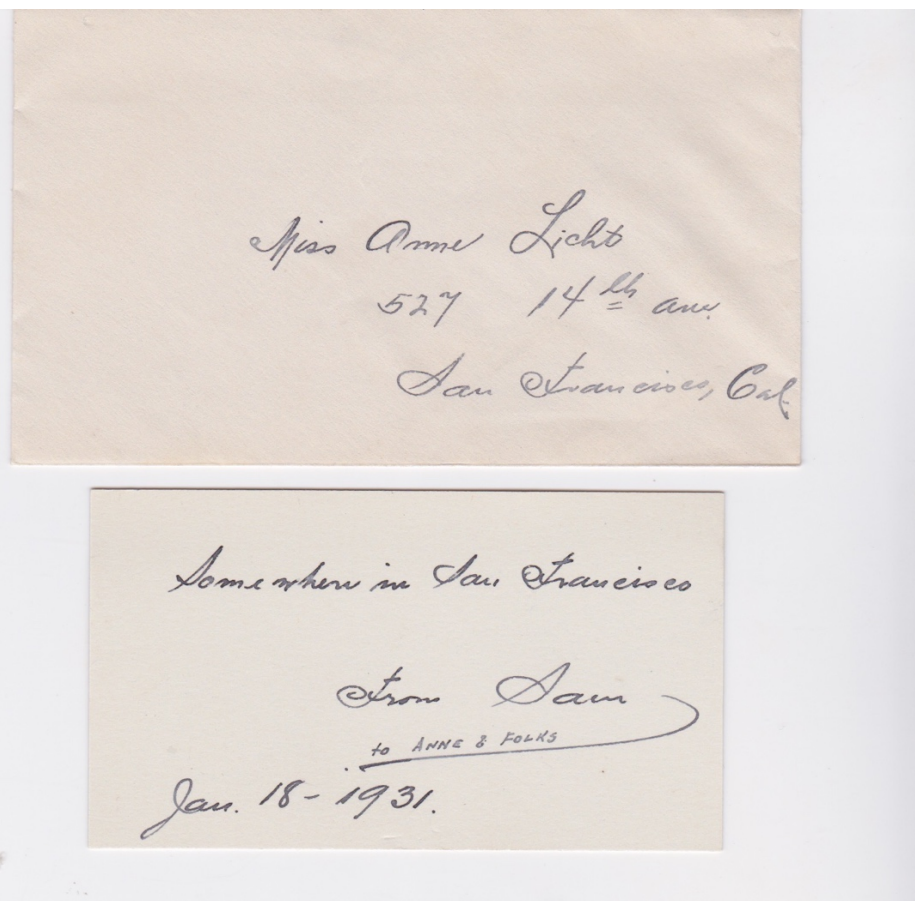 Miss Anne Licht
527 14th Ave.
San Francisco, Cal.
Somewhere in San Francisco
From Sam
to ANNE & FOLKS
Jan. 18 - 1931.